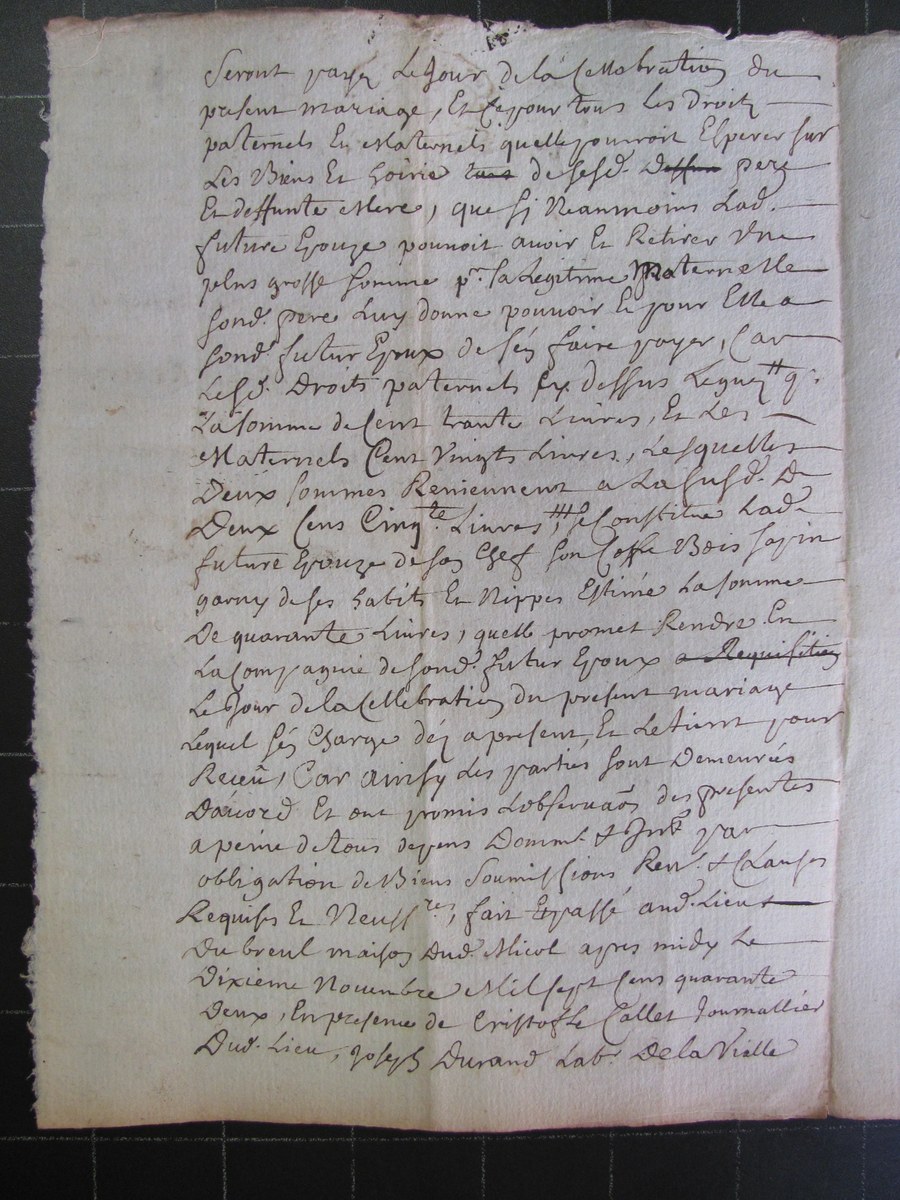 Seront payez Le Jour de la Cellebration du
present mariage, Et Ce pour tous les Droitz
paternels Et Maternels quelle pourroit Esperer sur
Les Biens Et hoirie de sesd. pere
Et deffunte Mere, que sy Neanmoins Lad.
future Epouze pouvoit avoir Et Retirer Une
plus grosse somme pr. sa Legitime Paternelle
sond. pere Luy donne pouvoir Et pour Elle a
sond. futur Epoux de sen faire payer, Car
Lesd. Droits paternels cy dessus
La somme de Cent trante Livres, Et Les
Maternels Cent Vingts Livres, Lesquelles
Deux sommes Reviennent a La susd. De
Deux Cens Cinqte. Livres, se Constitue Lad.
future Epouze de son Chef son Coffre Bois sapin
garny de ses habits Et Nippes Estimé La somme
De quarante Livres, quelle promet Rendre En
La Compagnie de sond. futur Epoux a Requisition
Le Jour de la Cellebration du present mariage
Lequel sen Charge dez a present, Et Le tient pour
Receu, Car ainsy Les parties sont Demeurées
Dacord Et ont promis Lobservaon des presentes
a peine de tous depens Domm. & Intr. par
obligation de Biens Soumissions Ren. & Clauses
Requises Et Necessres, fait Et passé aud. Lieu
Du breul maison Dud. Micol apres midy Le
Dixieme Novembre Mil sept Cens quarante
Deux, En presence de Cristofle Callet Journallier
Dud. Lieu, Joseph Durand Labr. De la Vialle